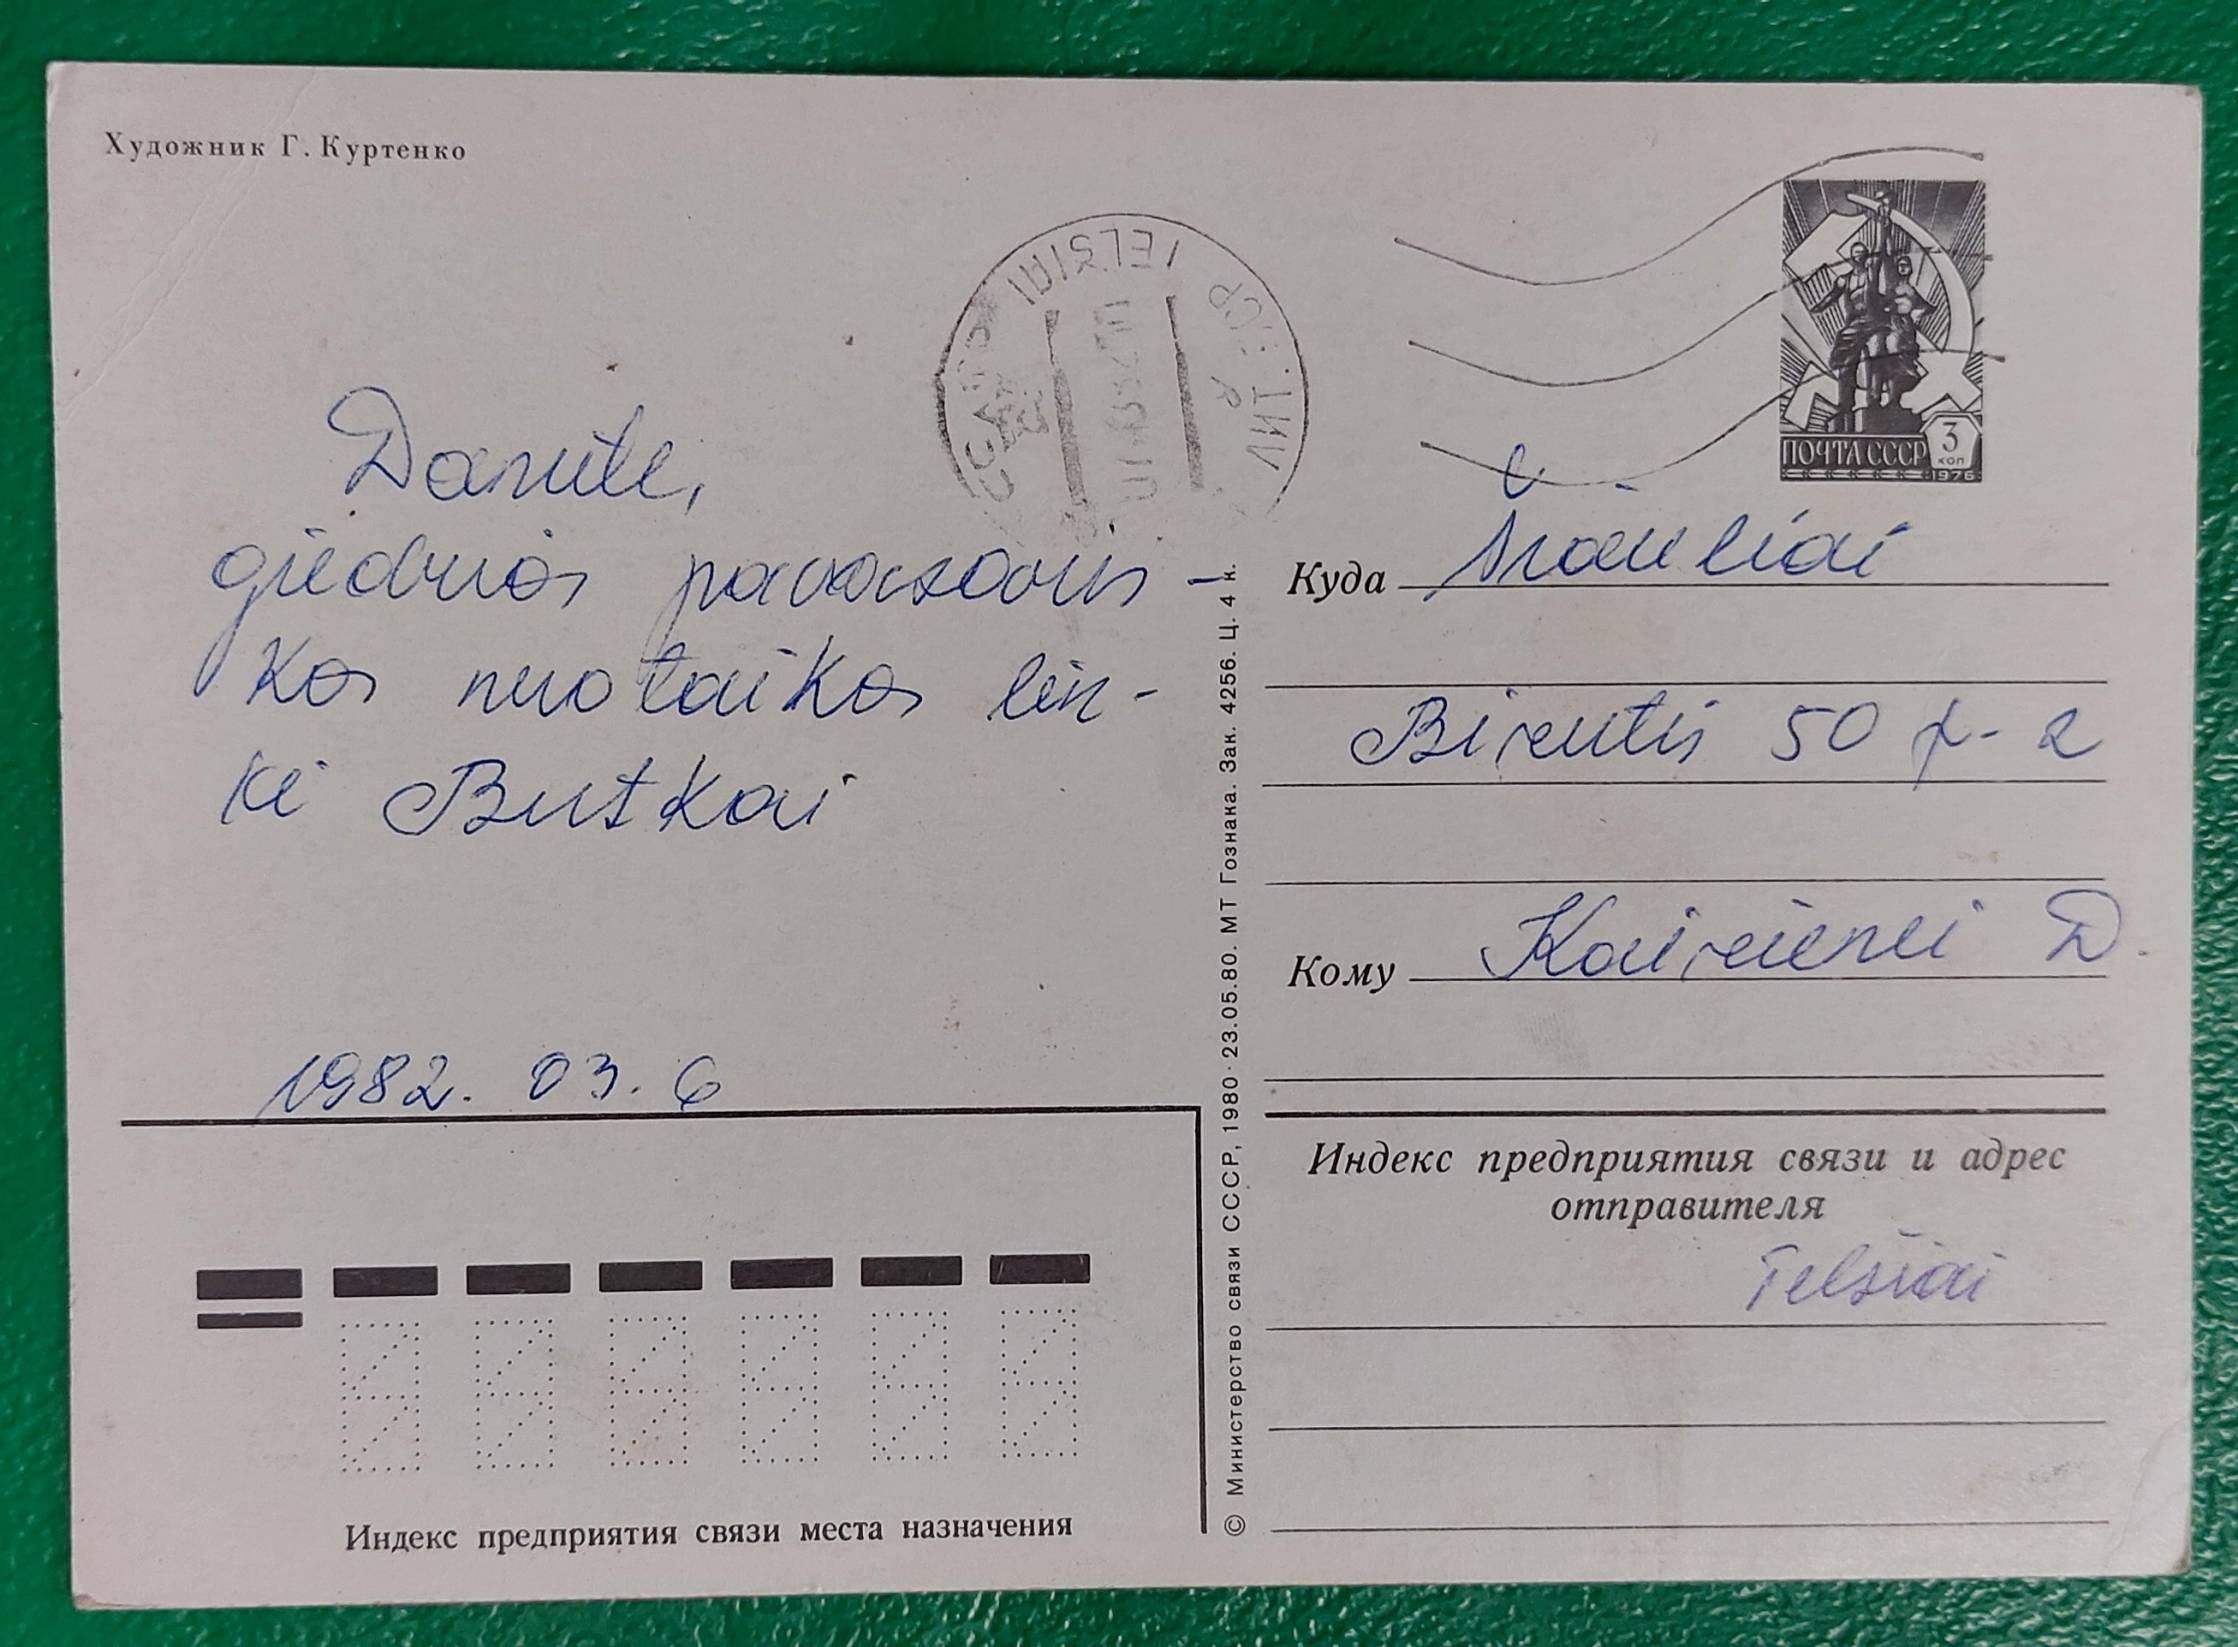 Художник Г. Куртенко
TELŠIAI
ПОЧТА СССР
3
КОП
1976
Danute,
giedrios pavasaris-
kos nuotaikos lin-
ki Butkai
1982. 03. 6
Индекс предприятия связи места назначения
© Министерство связи СССР, 1980 · 23.05.80. МТ Гознака. Зак. 4256. Ц. 4 к.
Куда Šiauliai
Birutės 50
Кому Kairienei D.
Индекс предприятия связи и адрес
отправителя
Telšiai